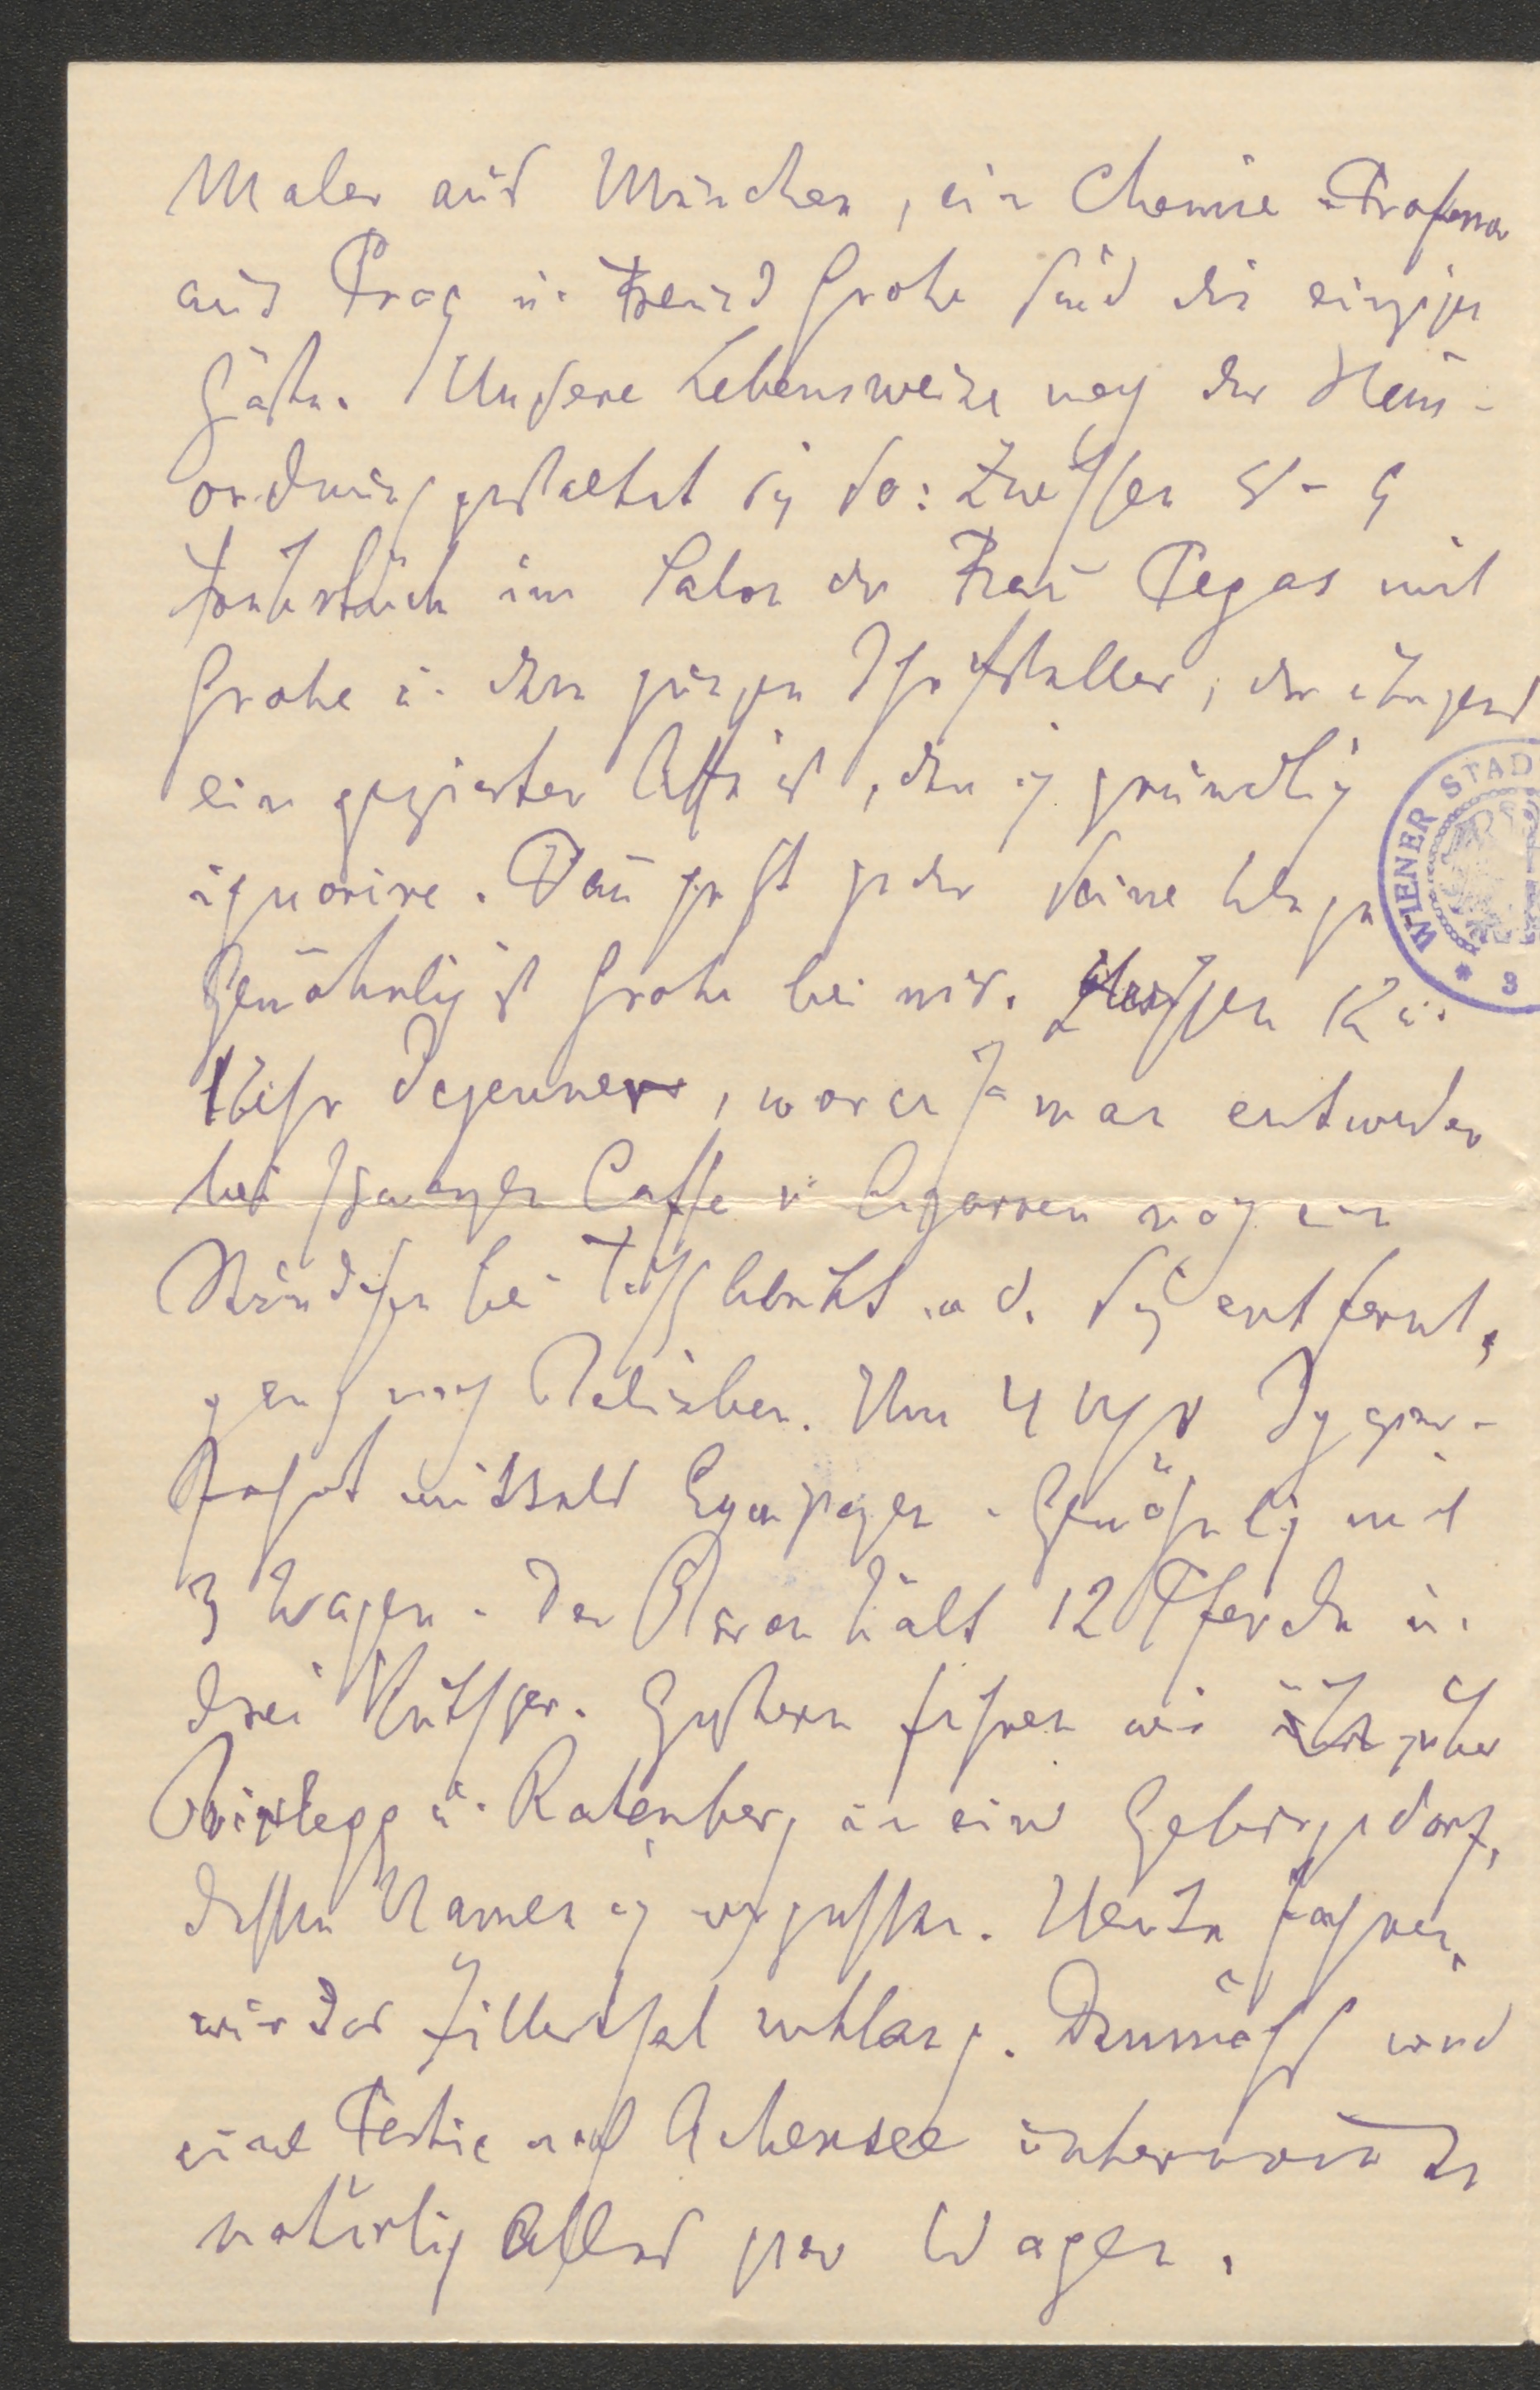 Maler aus München, ein Chemie-Professor
aus Prag u. Freund Grohe sind die einzigen
Gäste. Unsere Lebensweise nach der Haus-
ordnung gestaltet sich so: Zwischen 8 - 9
Frühstück im Salon der Frau Pegas mit
Grohe u. dem jungen Schriftsteller, der übrigens
ein gezierter Affe ist, den ich gründlich
ignorire. Dann geht jeder seine Wege
Gewöhnlich ist Grohe bei mir. Zwischen 12 u.
1 Uhr Dejeuner, worauf man entweder
bei schwarzen Caffe u Cigarren noch ein
Stündchen bei Tisch bleibt od. sich entfernt,
ganz nach Belieben. Um 4 Uhr Spazier-
fahrt mittels Equipagen. Gewöhnlich mit
3 Wagen. Der Baron hält 12 Pferde u.
drei Kutscher. Gestern fuhren wir über
Brixlegg u. Ratenberg in ein Gebirgsdorf,
dessen Namen ich vergessen. Heute fahren
wir das Zillerthal entlang. Demnächst wird
eine Partie nach Achensee unternommen
natürlich Alles per Wagen.
WIENER STAD